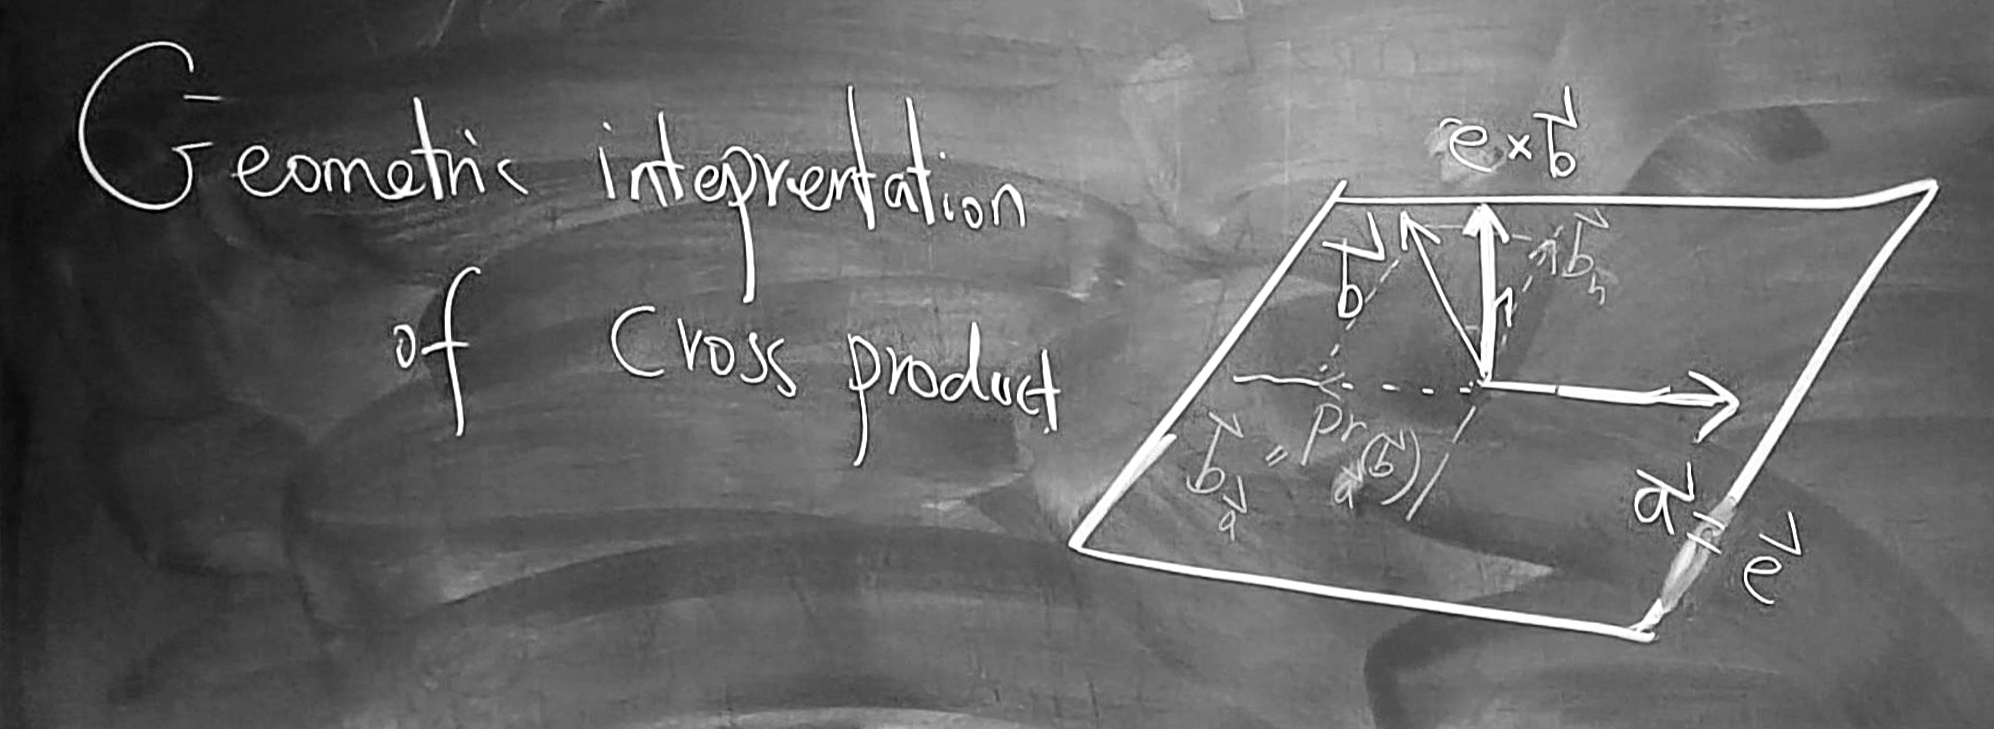 Geometric inteprentation
of Cross product
e × b⃗
b⃗
b⃗ₙ
b⃗_a⃗ = pr_a⃗(b⃗)
a⃗ = e⃗